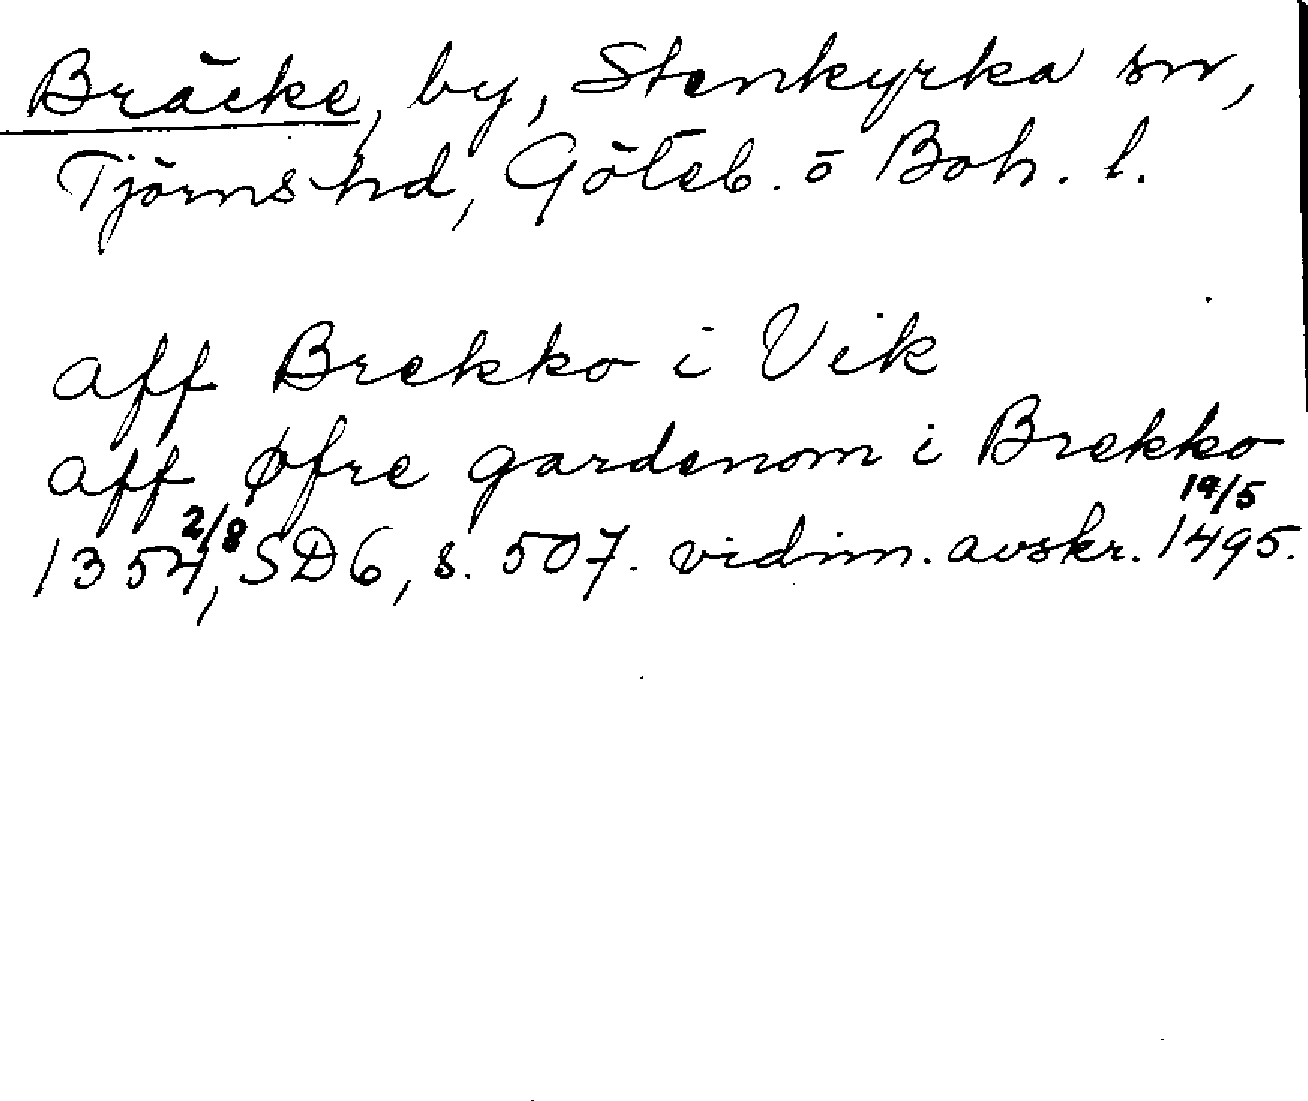 Bräcke, by, Stenkyrka sn,
Tjörns hd, Göteb. o Boh. l.
aff Brekko i Vik
aff Øfre gardenom i Brekko
1354 2/8, SD6, s. 507. vidim. avskr. 19/5 1495.